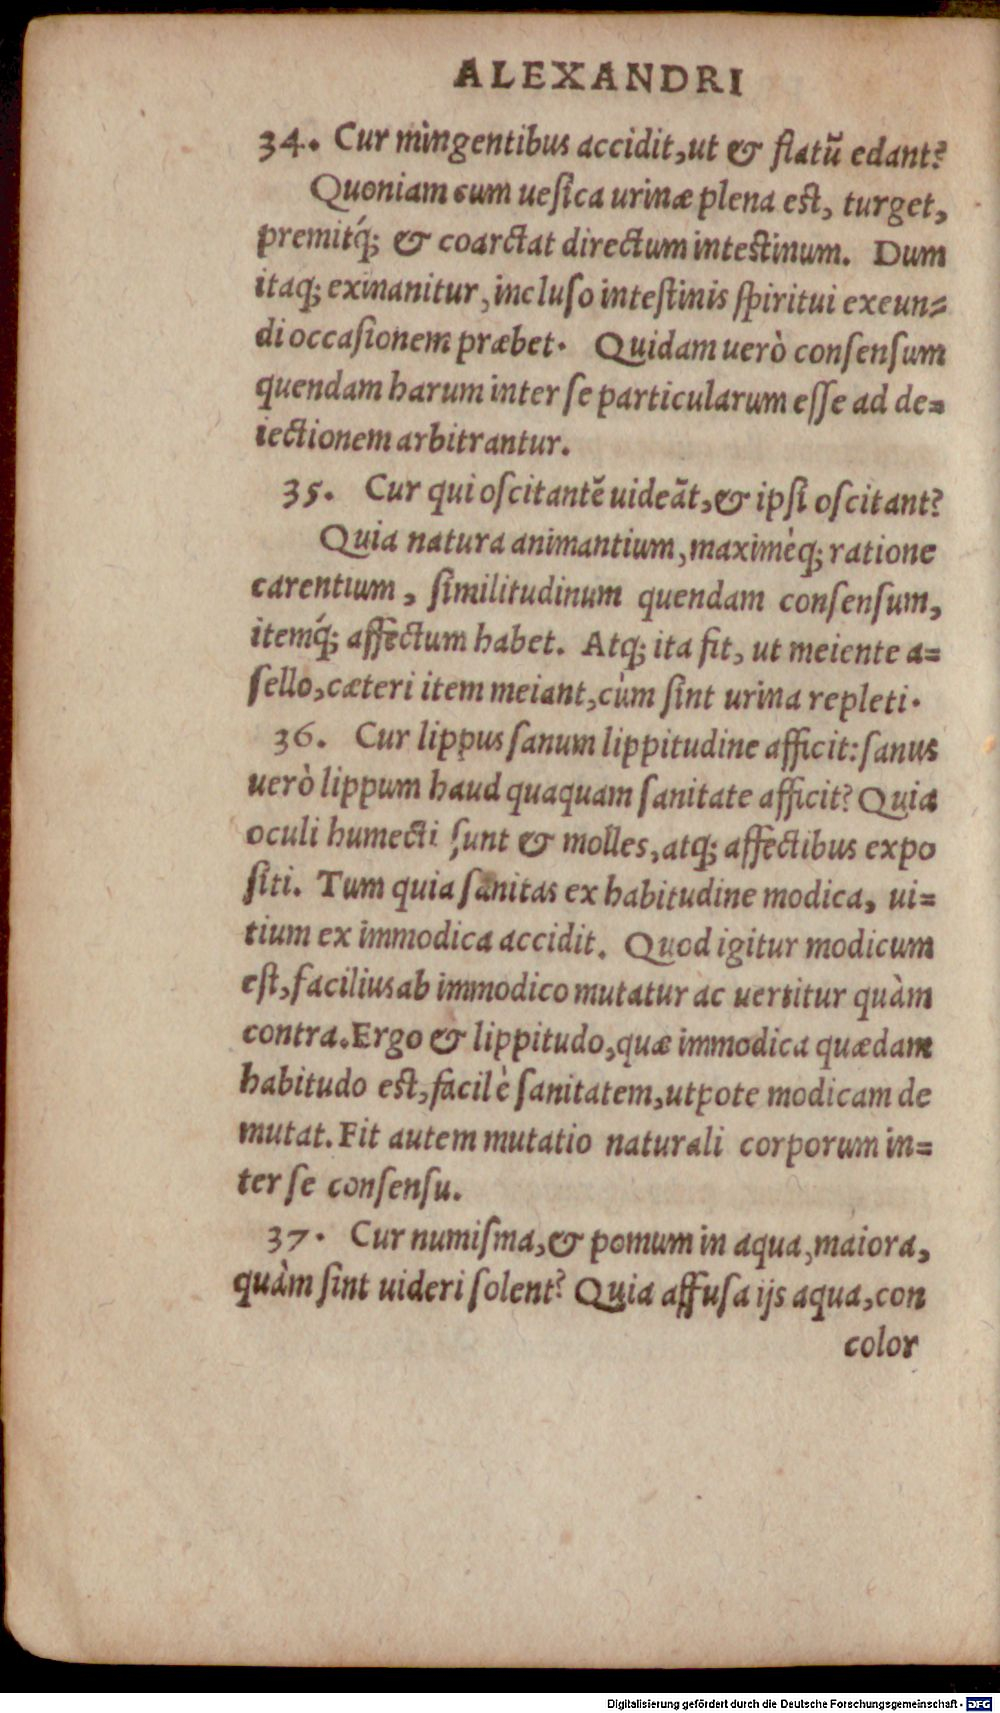 ALEXANDRI
34. Cur mingentibus accidit, ut & flatũ edant?
Quoniam cum uesica urinæ plena est, turget,
premitq́; & coarctat directum intestinum. Dum
itaq; exinanitur, incluso intestinis spiritui exeun=
di occasionem præbet. Quidam uerò consensum
quendam harum inter se particularum esse ad de=
iectionem arbitrantur.
35. Cur qui oscitantẽ uideãt, & ipsi oscitant?
Quia natura animantium, maximèq; ratione
carentium, similitudinum quendam consensum,
itemq́; affectum habet. Atq; ita fit, ut meiente a=
sello, cæteri item meiant, cùm sint urina repleti.
36. Cur lippus sanum lippitudine afficit: sanus
uerò lippum haud quaquam sanitate afficit? Quia
oculi humecti sunt & molles, atq; affectibus expo
siti. Tum quia sanitas ex habitudine modica, ui=
tium ex immodica accidit. Quod igitur modicum
est, facilius ab immodico mutatur ac uertitur quàm
contra. Ergo & lippitudo, quæ immodica quædam
habitudo est, facilè sanitatem, utpote modicam de
mutat. Fit autem mutatio naturali corporum in=
ter se consensu.
37. Cur numisma, & pomum in aqua, maiora,
quàm sint uideri solent? Quia affusa ijs aqua, con
color
Digitalisierung gefördert durch die Deutsche Forschungsgemeinschaft - DFG